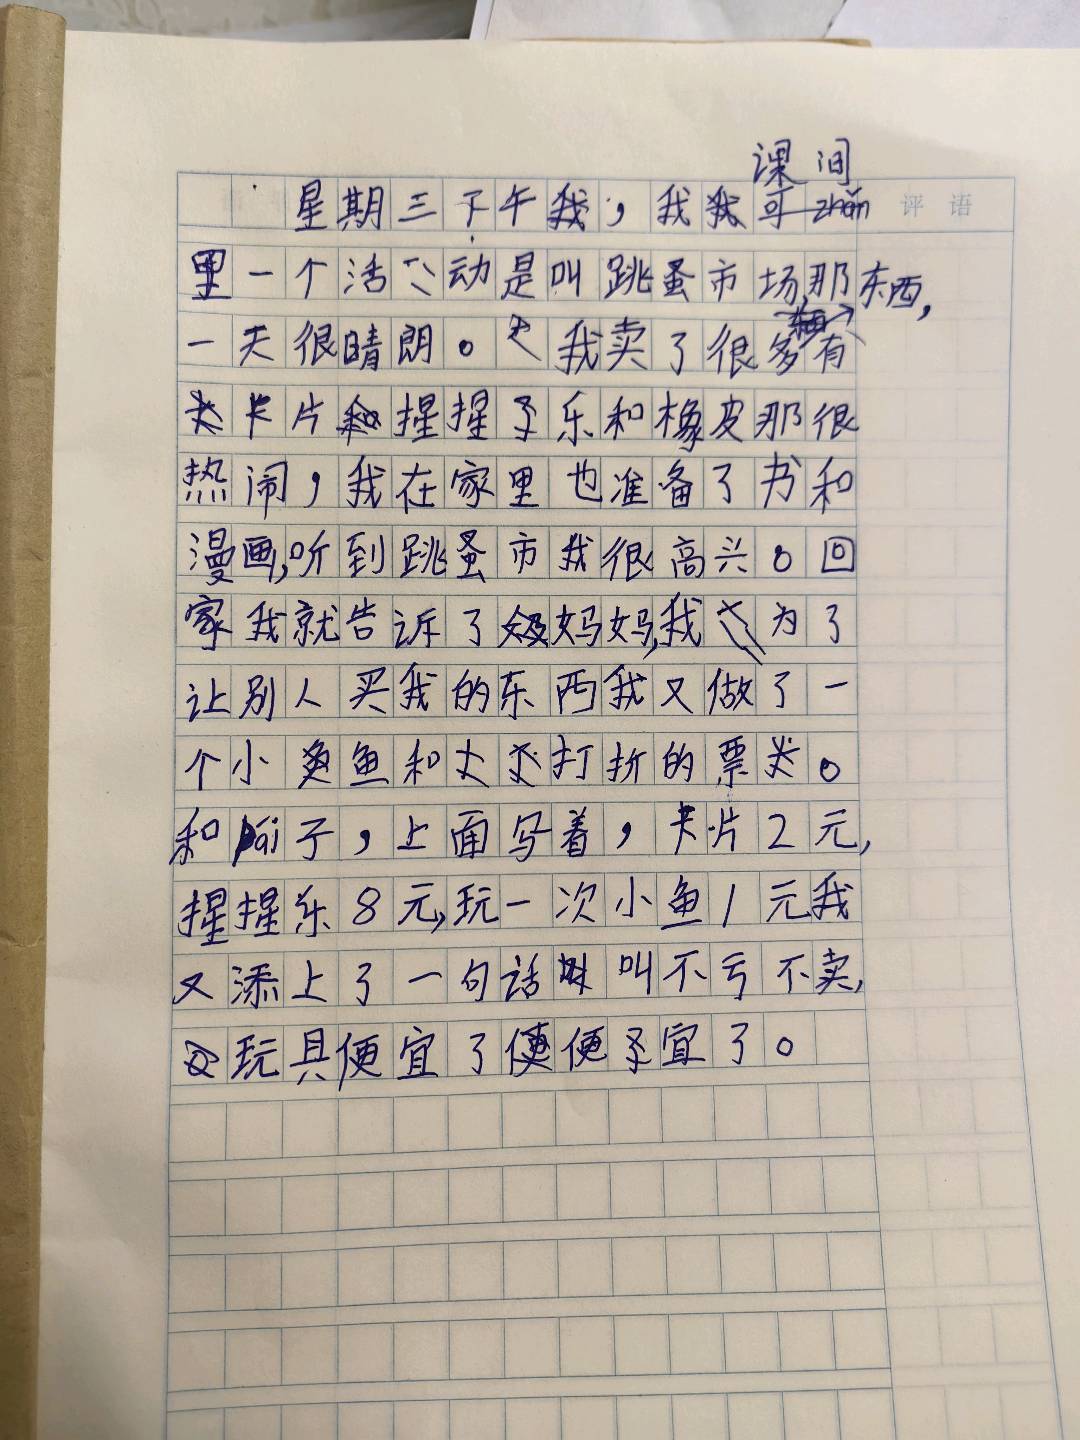 课间
星期三下午我，我我可zhǎn 评语
里一个活动是叫跳蚤市场,那东西，
一天很晴朗。我卖了很多有
卡片和猩猩子乐和橡皮那很
热闹，我在家里也准备了书和
漫画,听到跳蚤市我很高兴。回
家我就告诉了妈妈,我为了
让别人买我的东西我又做了一
个小鱼和打折的票类。
和pái子，上面写着，卡片2元，
猩猩乐8元,玩一次小鱼1元我
又添上了一句话叫不亏不卖，
玩具便宜了便宜了。